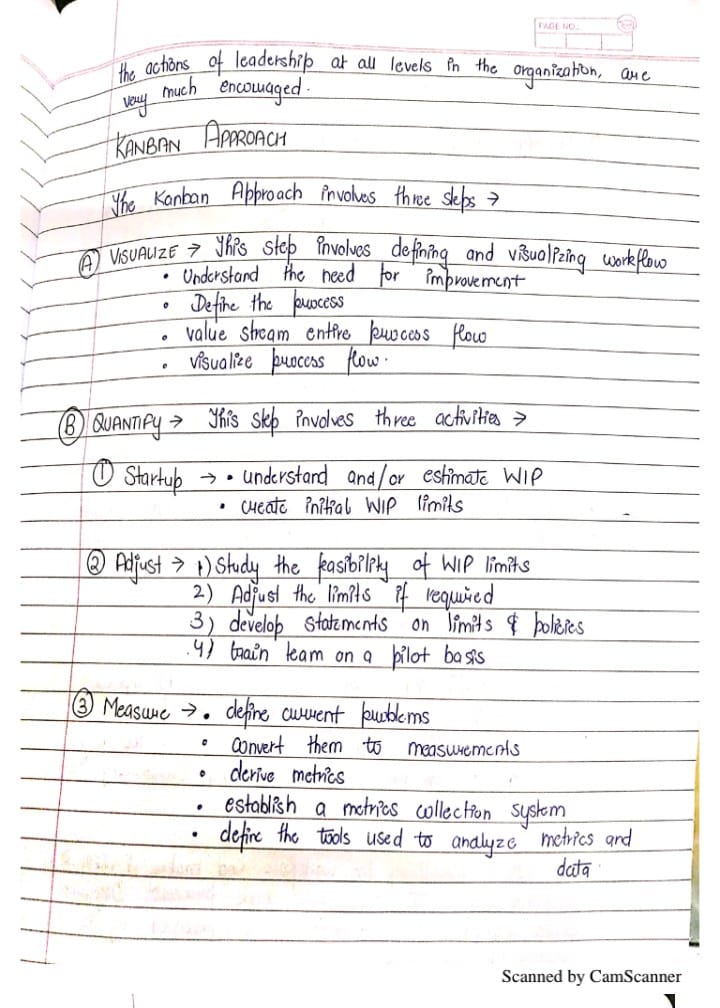 PAGE NO.
the actions of leadership at all levels in the organization, are
very much encouraged.
KANBAN APPROACH
The Kanban Approach involves three steps →
Ⓐ VISUALIZE → This step involves defining and visualizing workflow
• Understand the need for improvement
• Define the process
• value stream entire process flow
• visualize process flow.
Ⓑ QUANTIFY → This step involves three activities →
① Startup → • understand and/or estimate WIP
• create initial WIP limits
② Adjust → 1) Study the feasibility of WIP limits
2) Adjust the limits if required
3) develop statements on limits & policies
4) train team on a pilot basis
③ Measure → • define current problems
• convert them to measurements
• derive metrics
• establish a metrics collection system
• define the tools used to analyze metrics and
data
Scanned by CamScanner